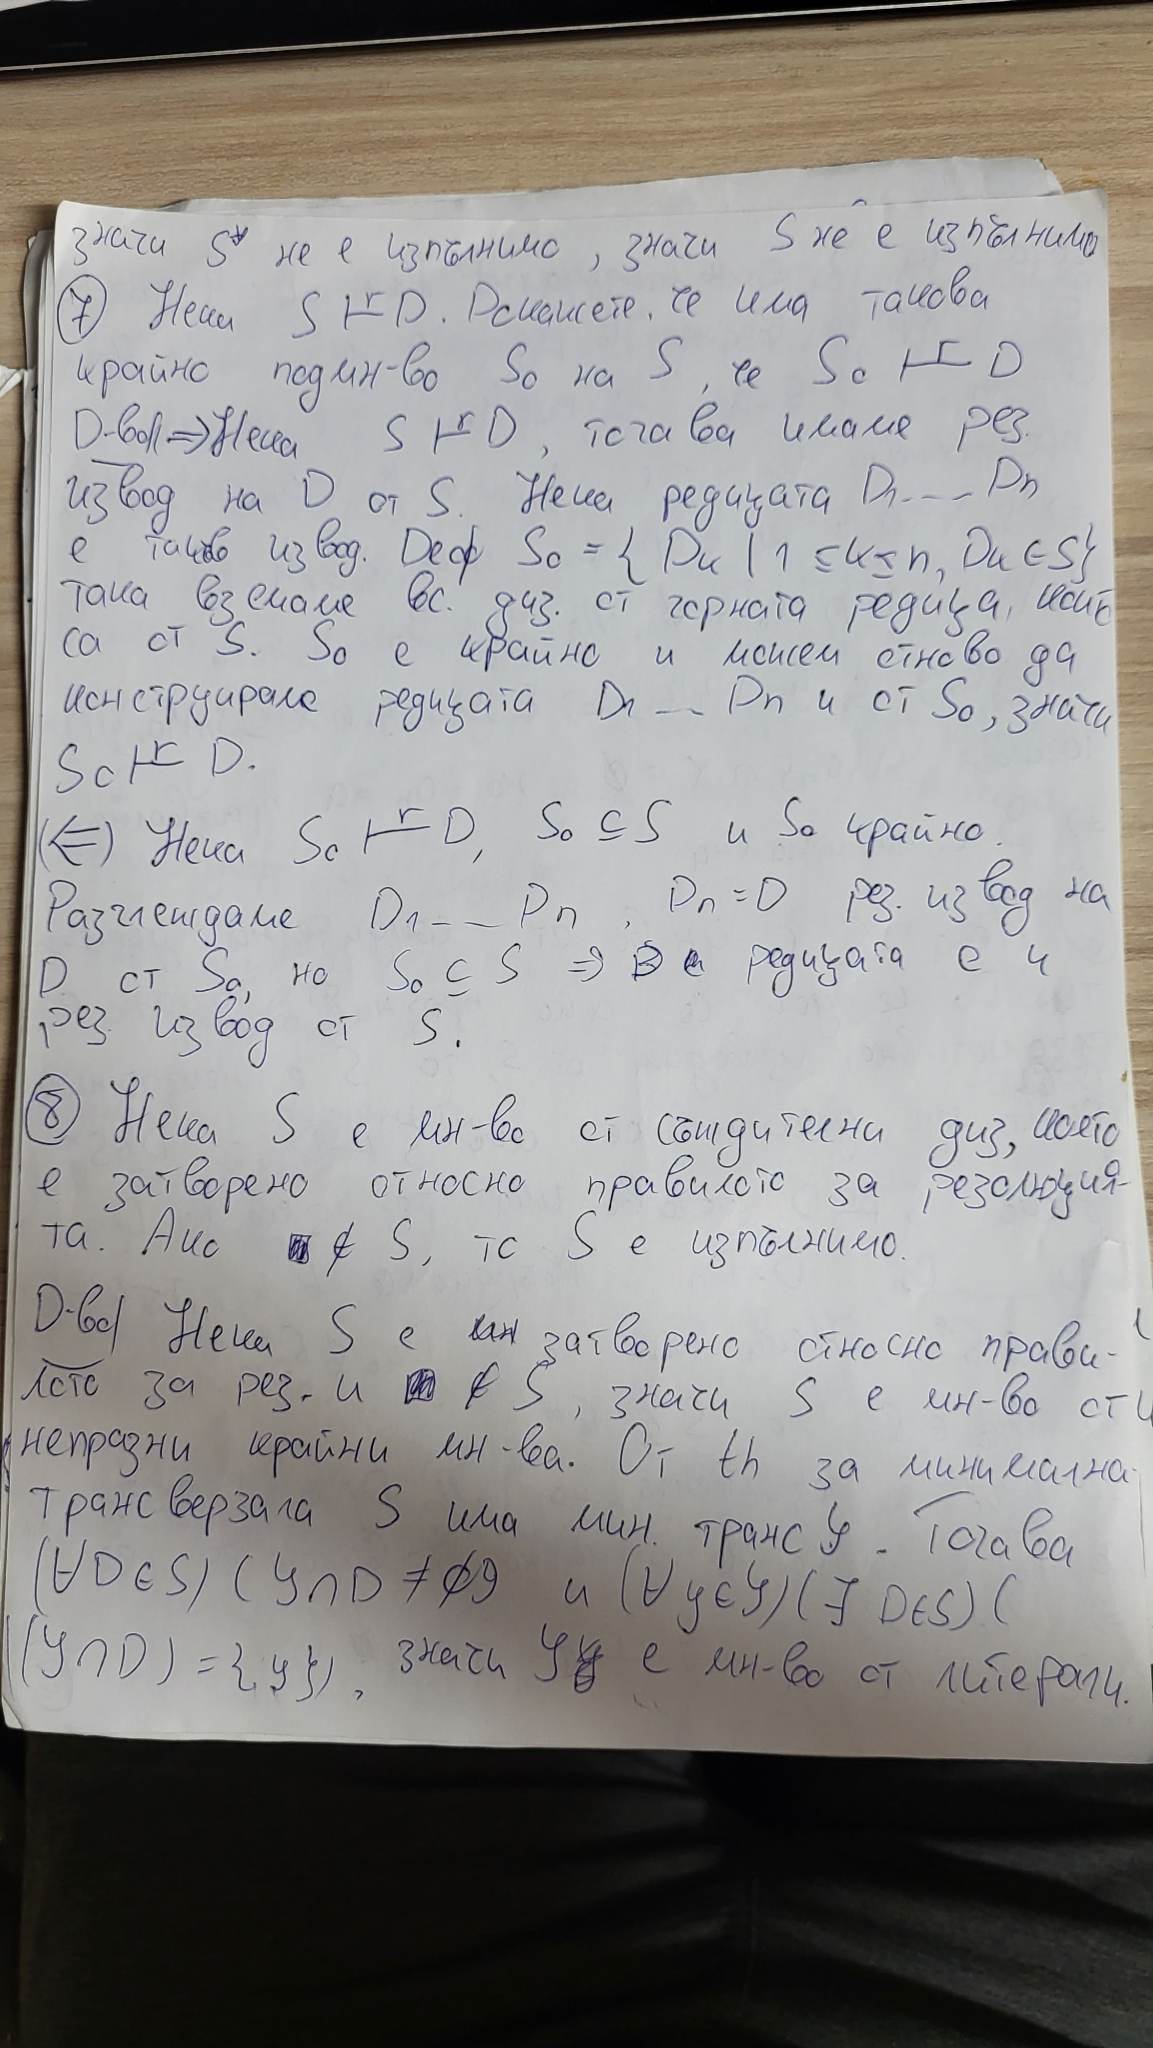 значи S* не е изпълнимо, значи S не е изпълнимо
⑦ Нека S ⊢ʳ D. Докажете, че има такова
крайно подмн-во S₀ на S, че S₀ ⊢ʳ D
D-во/⇒ Нека S ⊢ʳ D, тогава имаме рез.
извод на D от S. Нека редицата D₁ --- Dn
е такъв извод. Деф S₀ = { Dк | 1 ≤ к ≤ n, Dк ∈ S}
така вземаме вс. диз. от горната редица, които
са от S. S₀ е крайно и можем отново да
конструираме редицата D₁ -- Dn и от S₀, значи
S₀ ⊢ʳ D.
(⇐) Нека S₀ ⊢ʳ D, S₀ ⊆ S и S₀ крайно.
Разглеждаме D₁ --- Dn, Dn = D рез. извод на
D от S₀, но S₀ ⊆ S ⇒ редицата е и
рез. извод от S.
⑧ Нека S е мн-во от съждителни диз, което
е затворено относно правилото за резолюция-
та. Ако ■ ∉ S, то S е изпълнимо.
D-во/ Нека S е затворено относно прави-
лото за рез. и ■ ∉ S, значи S е мн-во от
непразни крайни мн-ва. От th за минимална
трансверзала S има мин. транс Y. Тогава
(∀D∈S) (Y∩D ≠ ∅) и (∀y∈Y)(∃ D∈S)(
(Y∩D) = {y}), значи Y е мн-во от литерали.